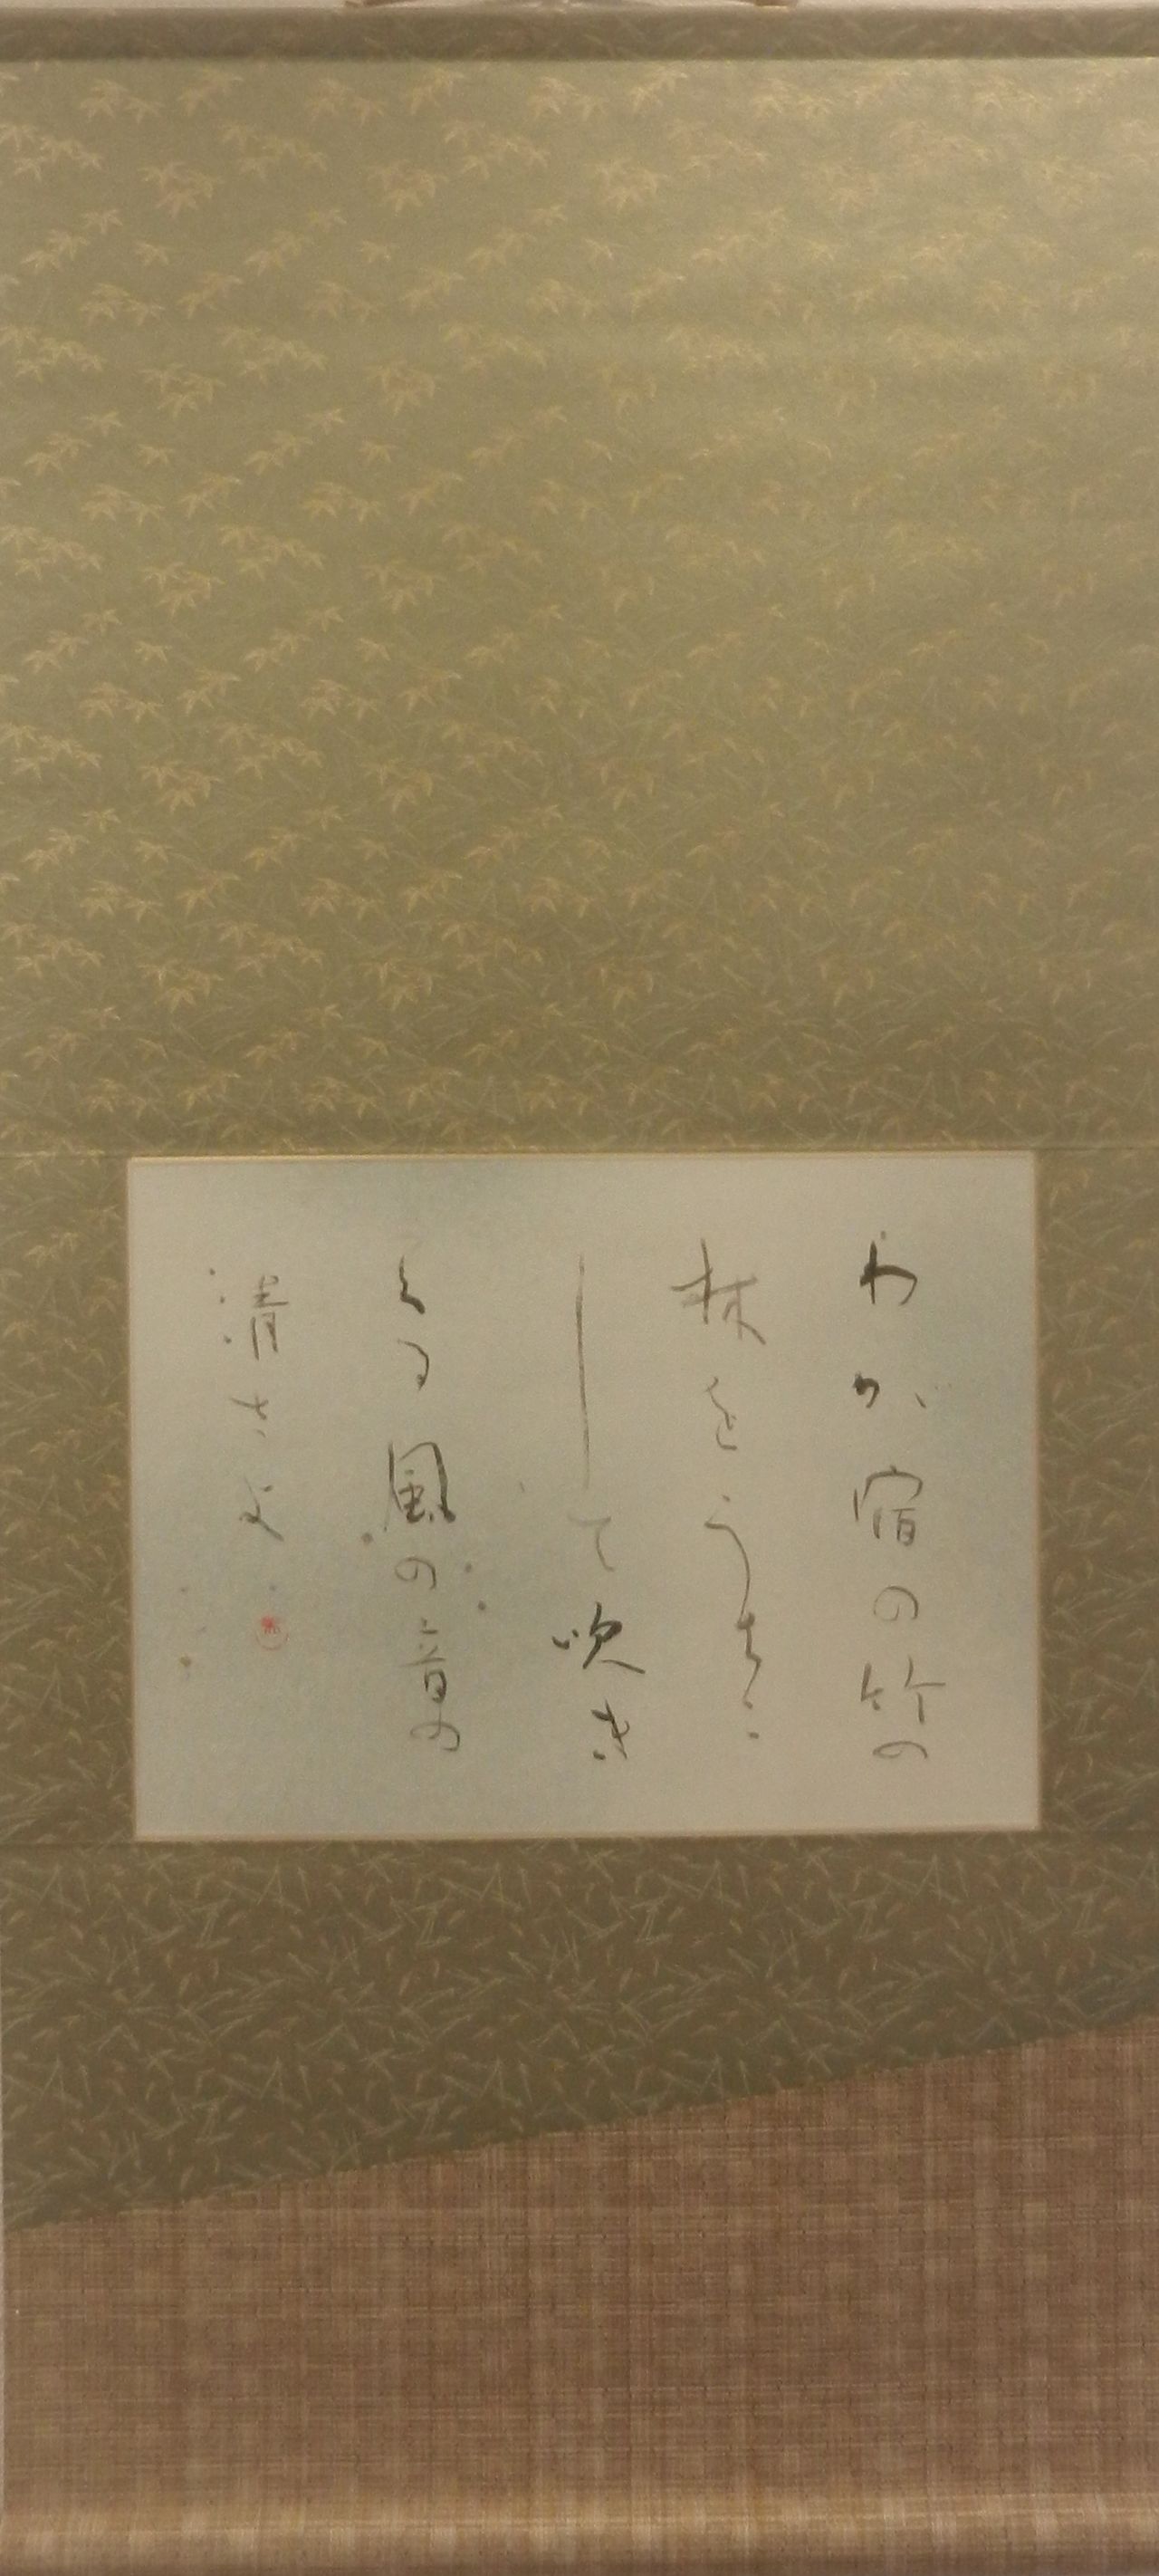 わか宿の竹の
林をうちに
して吹き
くる風の音の
清さよ